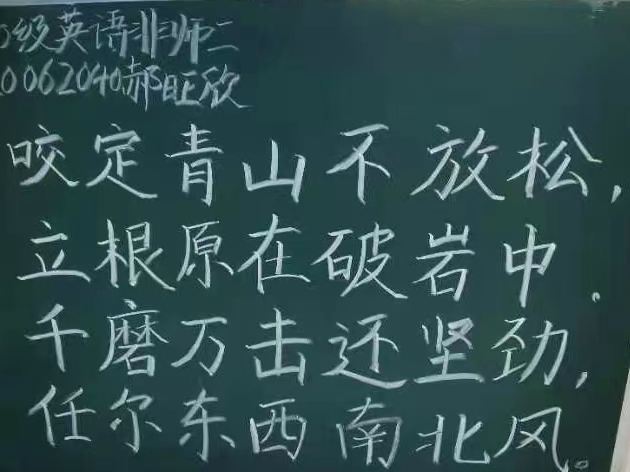 0级英语非师二
0062040郝旺欣
咬定青山不放松，
立根原在破岩中．
千磨万击还坚劲，
任尔东西南北风。